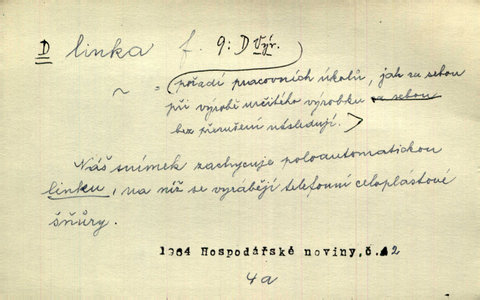 D linka f. 9: D Výr.
~ = (pořadí pracovních úkolů, jak za sebou
při výrobě určitého výrobku za sebou
bez přerušení následují.>
Náš snímek zachycuje poloautomatickou
linku, na níž se vyrábějí telefonní celoplastové
šňůry.
1964 Hospodářské noviny,č.42
4a